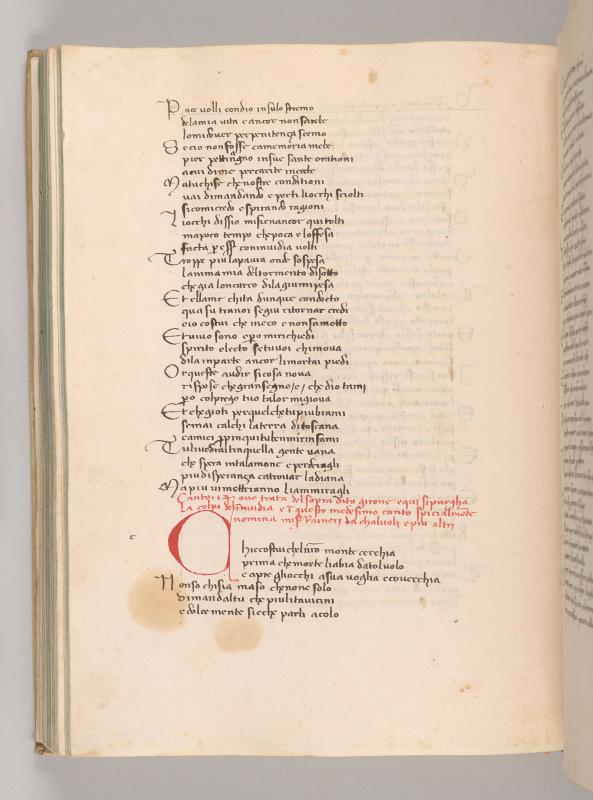 Pace volli condio insulo stremo
dela mia vita e ancor non sarebe
lomio dover per penitença scemo
Se cio non fosse ca memoria mebe
pier pettingno in sue sante orationi
a cui di me per carite increbe
Ma tu chi se che nostre conditioni
vai dimandando e porti liocchi sciolti
si comio credo e spirando ragioni
Liocchi dissio mi fien ancor qui tolti
ma poco tempo che poca e loffesa
facta per esser con invidia volti
Troppe piu la paura onde sospesa
lanima mia del tormento disotto
che gia loncarco dila giu mi pesa
Et ella me chi ta dunque condocto
qua su tra noi se giu ritornar credi
e io costui che meco e non fa motto
Et vivo sono e pero mi richiedi
spirito electo se tu voi chi mova
dila in parte ancor li mortai piedi
Or queste audir si cosa nova
rispose che gran segno /e/ che dio tami
pero col prego tuo talor mi giova
Et chegioti per quel che tu piu brami
se mai calchi la terra di toscana
ca miei propinqui tu ben mi rinfami
Tu li vedrai tra quella gente vana
che spera in talamone e perderagli
piu di sperança ca trovar la diana
Ma piu vi metteranno li ammiragli
Canto 14 ove trata del sopra dito girone e qui si purgha
La colpa del invidia e in questo medesimo canto spicialmente
nomina miss Raineri da chalvoli e piu altri
Chi e costui chel nostro monte cerchia
prima che morte li abia dato lo volo
e apre gliocchi a sua voglia e coverchia
Non so chi sia ma so che none solo
dimandal tu che piu li tavicini
e dolce mente si che parli acolo